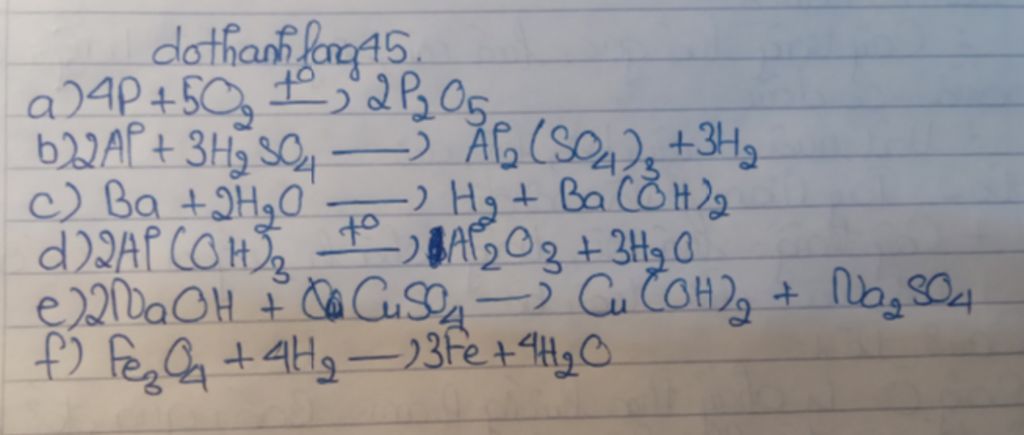 dothanhlong45.
a) 4P + 5O₂ t°→ 2P₂O₅
b) 2Al + 3H₂SO₄ → Al₂(SO₄)₃ + 3H₂
c) Ba + 2H₂O → H₂ + Ba(OH)₂
d) 2Al(OH)₃ t°→ Al₂O₃ + 3H₂O
e) 2NaOH + CuSO₄ → Cu(OH)₂ + Na₂SO₄
f) Fe₃O₄ + 4H₂ → 3Fe + 4H₂O